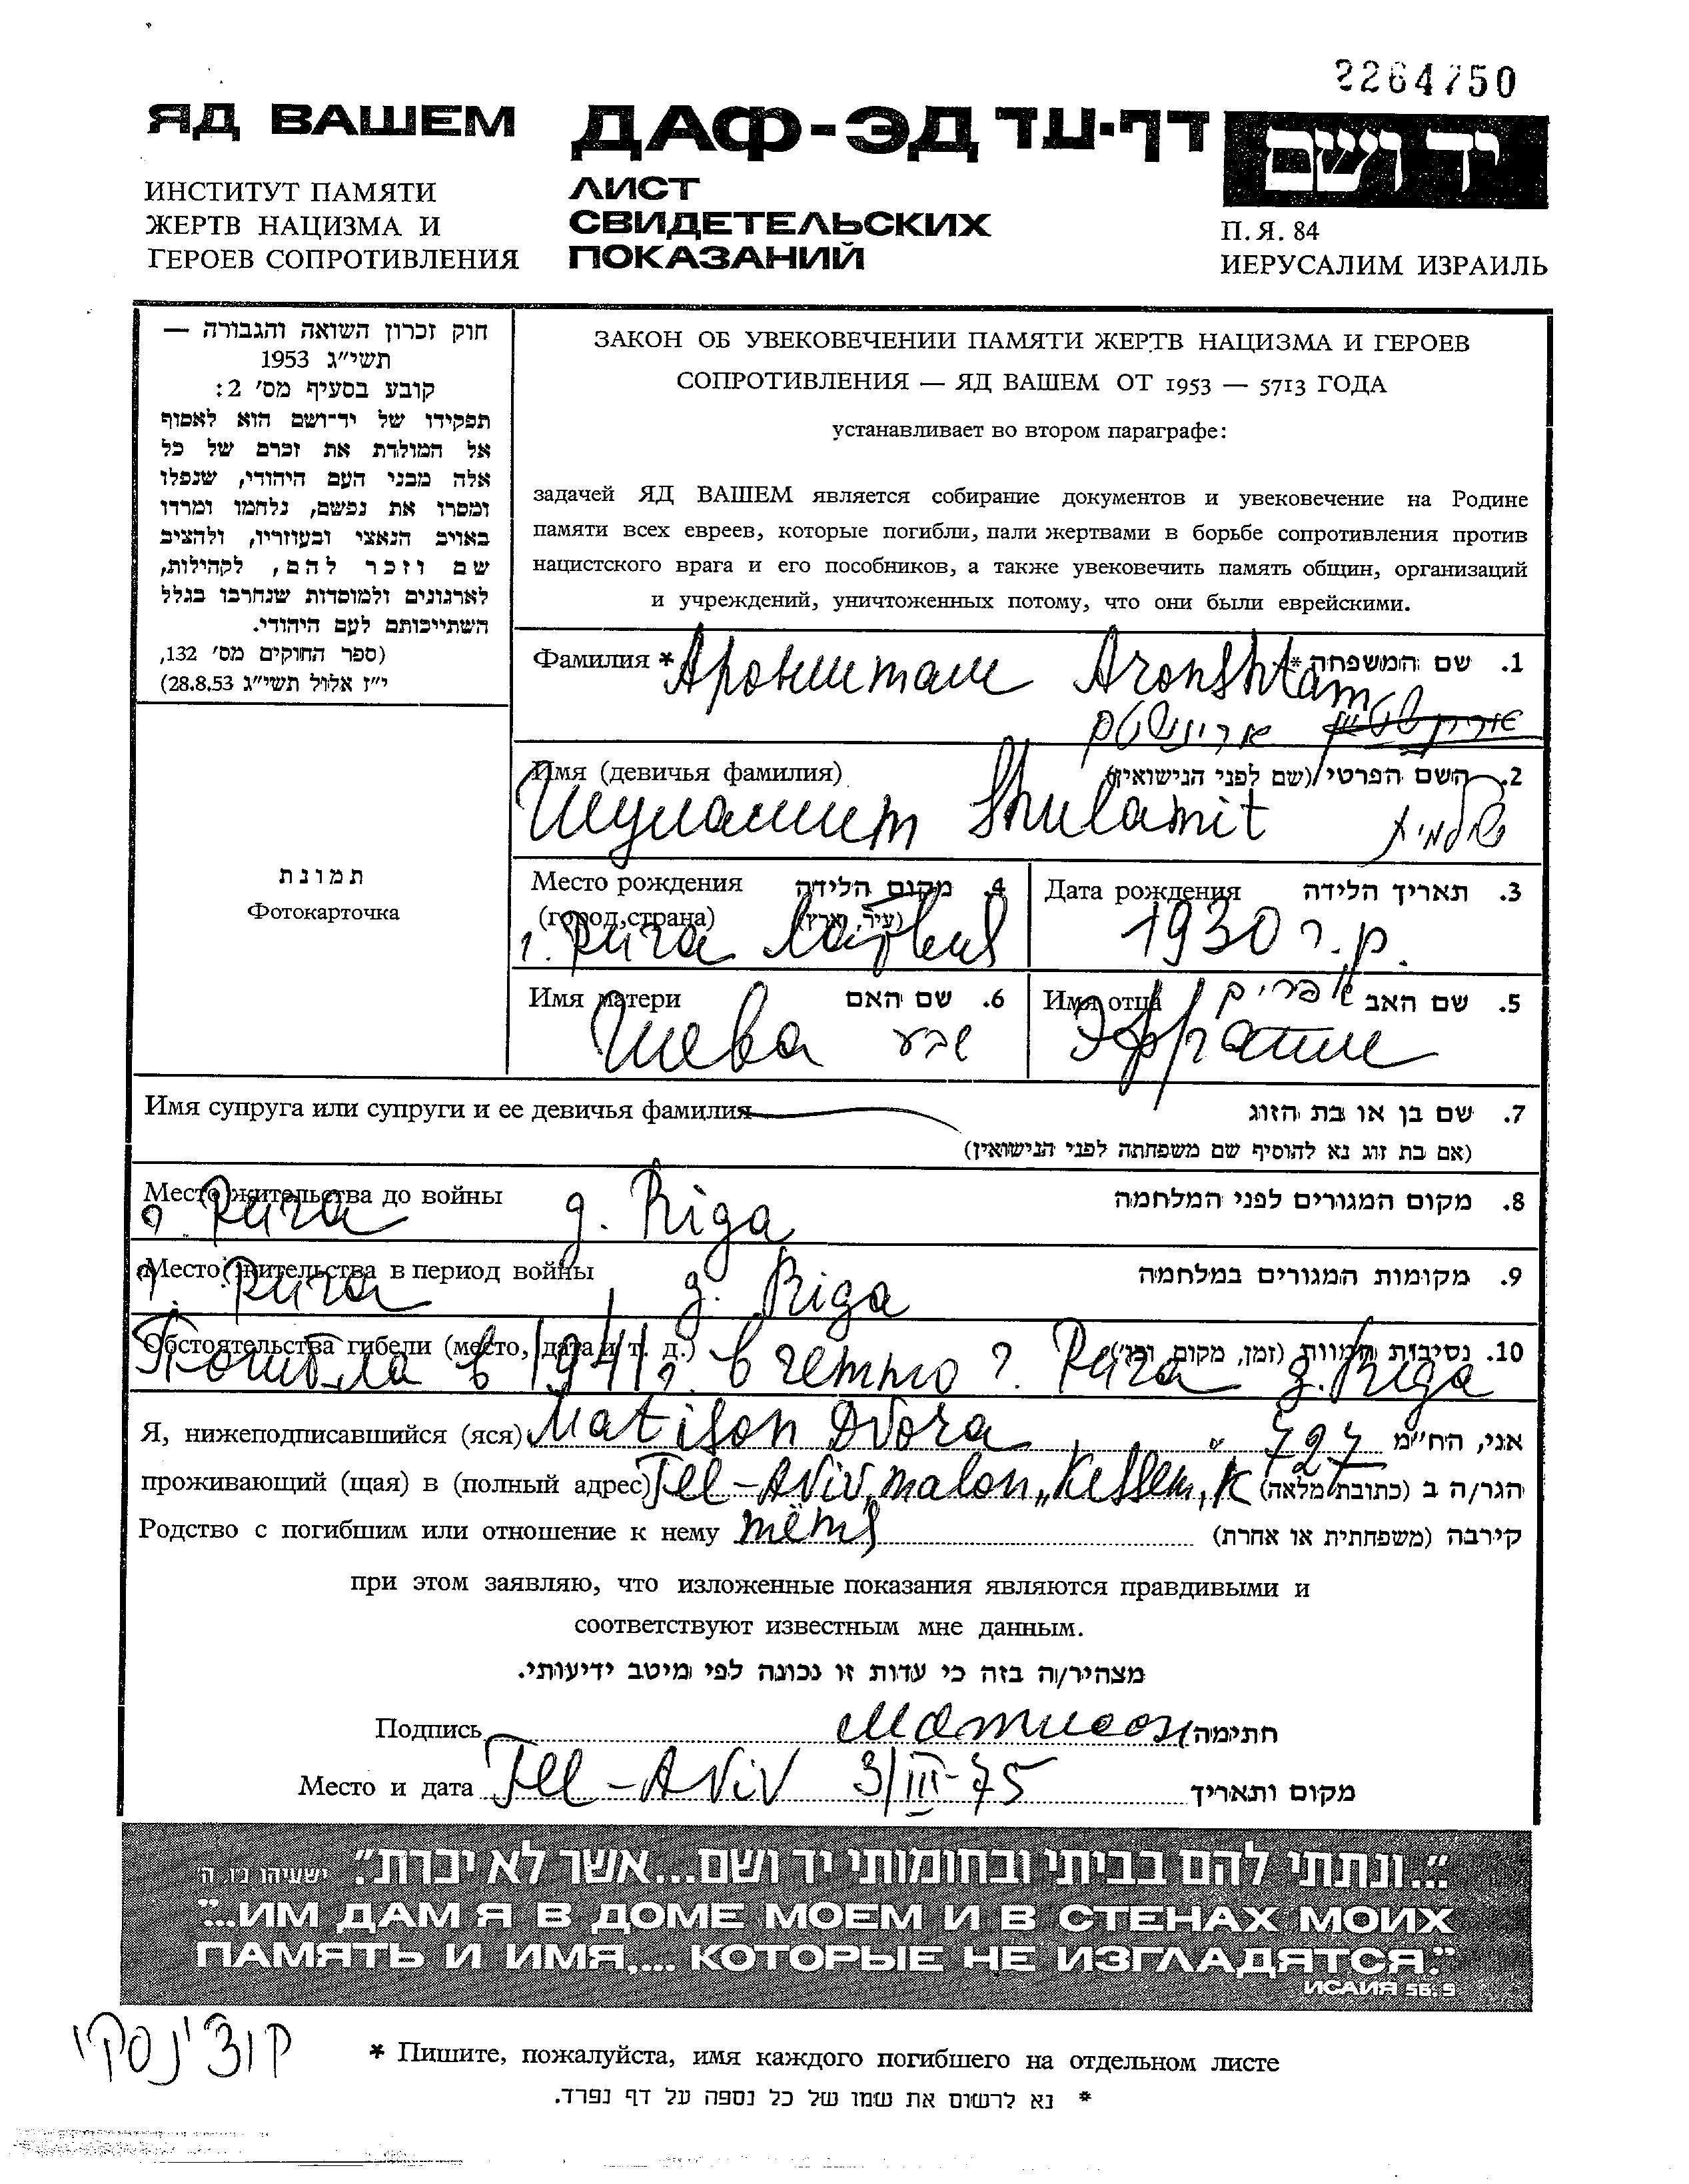 2264750
ЯД ВАШЕМ ДАФ-ЭД דף-עד יד ושם
ИНСТИТУТ ПАМЯТИ
ЖЕРТВ НАЦИЗМА И
ГЕРОЕВ СОПРОТИВЛЕНИЯ
ЛИСТ
СВИДЕТЕЛЬСКИХ
ПОКАЗАНИЙ
П. Я. 84
ИЕРУСАЛИМ ИЗРАИЛЬ
חוק זכרון השואה והגבורה —
תשי״ג 1953
קובע בסעיף מס׳ 2:
תפקידו של יד־ושם הוא לאסוף
אל המולדת את זכרם של כל
אלה מבני העם היהודי, שנפלו
ומסרו את נפשם, נלחמו ומרדו
באויב הנאצי ובעוזריו, ולהציב
שם וזכר להם, לקהילות,
לארגונים ולמוסדות שנחרבו בגלל
השתייכותם לעם היהודי.
(ספר החוקים מס׳ 132,
י״ז אלול תשי״ג 28.8.53)
תמונת
Фотокарточка
ЗАКОН ОБ УВЕКОВЕЧЕНИИ ПАМЯТИ ЖЕРТВ НАЦИЗМА И ГЕРОЕВ
СОПРОТИВЛЕНИЯ — ЯД ВАШЕМ ОТ 1953 — 5713 ГОДА
устанавливает во втором параграфе:
задачей ЯД ВАШЕМ является собирание документов и увековечение на Родине
памяти всех евреев, которые погибли, пали жертвами в борьбе сопротивления против
нацистского врага и его пособников, а также увековечить память общин, организаций
и учреждений, уничтоженных потому, что они были еврейскими.
Фамилия * Аронштам Aronshtam 1. שם המשפחה*
ארונשטם
Имя (девичья фамилия) 2. השם הפרטי (שם לפני הנישואין)
Шуламит Shulamit שולמית
Место рождения 4. מקום הלידה
(город,страна) (עיר, ארץ)
г. Рига Латвия
Дата рождения 3. תאריך הלידה
1930 г. р.
Имя матери 6. שם האם
Шева שבע
Имя отца 5. שם האב אפרים
Эфраим
Имя супруга или супруги и ее девичья фамилия 7. שם בן או בת הזוג
(אם בת זוג נא להוסיף שם משפחתה לפני הנישואין)
Место жительства до войны 8. מקום המגורים לפני המלחמה
г. Рига g. Riga
Место жительства в период войны 9. מקומות המגורים במלחמה
г. Рига g. Riga
Обстоятельства гибели (место, дата и т. д.) 10. נסיבות המוות (זמן, מקום, וכו׳)
Погибла в 1941 г. в гетто г. Рига g. Riga
Я, нижеподписавшийся (яся) Matison Dvora 727 אני, הח״מ
проживающий (щая) в (полный адрес) Tel-Aviv, malon „Kessem, K הגר/ה ב (כתובת מלאה)
Родство с погибшим или отношение к нему тётя קירבה (משפחתית או אחרת)
при этом заявляю, что изложенные показания являются правдивыми и
соответствуют известным мне данным.
מצהיר/ה בזה כי עדות זו נכונה לפי מיטב ידיעותי.
Подпись Матисон חתימה
Место и дата Tel-Aviv 3/III-75 מקום ותאריך
״...ונתתי להם בביתי ובחומותי יד ושם...אשר לא יכרת״. ישעיהו נ״ו, ה׳
"...ИМ ДАМ Я В ДОМЕ МОЕМ И В СТЕНАХ МОИХ
ПАМЯТЬ И ИМЯ,... КОТОРЫЕ НЕ ИЗГЛАДЯТСЯ."
ИСАИЯ 56.5
קוצ׳ינסקי
* Пишите, пожалуйста, имя каждого погибшего на отдельном листе
* נא לרשום את שמו של כל נספה על דף נפרד.